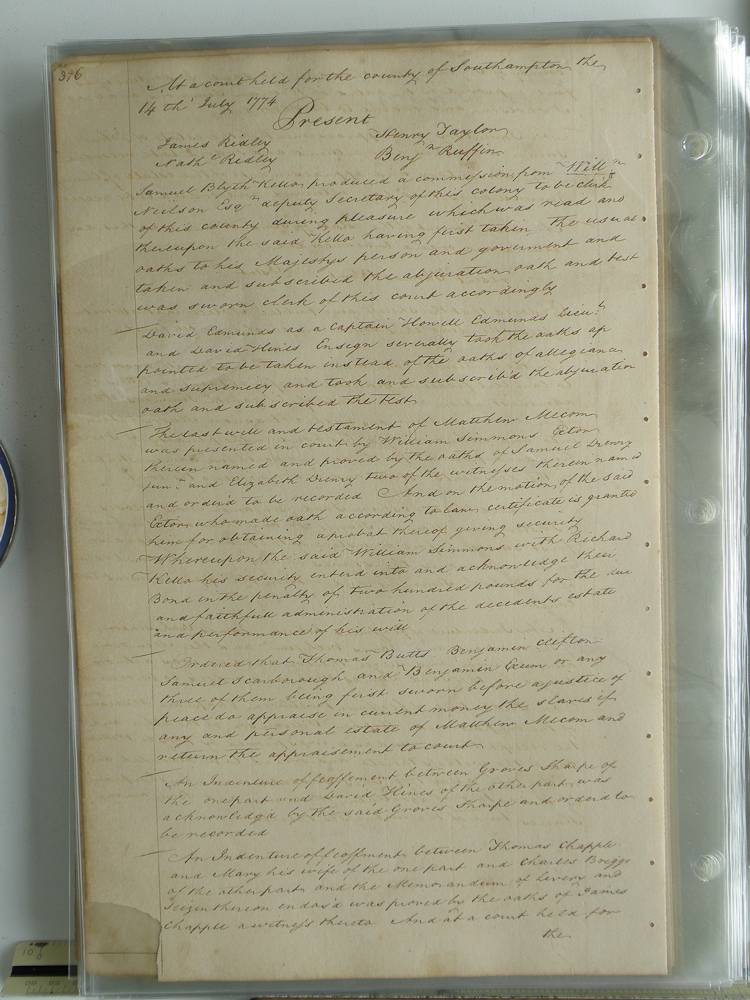 396
At a court held for the county of Southampton the
14th July 1774
Present
James Ridley Henry Taylor
Nathl Ridley Benjn Ruffin
Samuel Blyth Kello produced a commission from Willm
Neilson Esqr deputy Secretary of this colony to be clerk
of this county during pleasure which was read and
thereupon the said Kello having first taken the usual
oaths to his Majestys person and goverment and
taken and subscribed the abjuration oath and test
was sworn clerk of this court accordingly
David Edmunds as a Captain Howell Edmunds Lieut
and David Hines Ensign severally took the oaths ap
pointed to be taken instead of the oaths of allegiance
and supremecy and took and subscrib'd the abjuration
oath and subscribed the test
The last will and testament of Matthew Mecom
was presented in court by William Simmons Exctor
therein named and proved by the oaths of Samuel Drewry
junr and Elizabeth Drewry two of the witnesses therein named
and order'd to be recorded And on the motion of the said
Exctor who made oath according to law certificate is granted
him for obtaining a probat thereof giving security
Whereupon the said William Simmons with Richard
Kello his security enterd into and acknowledge their
Bond in the penalty of two hundred pounds for the due
and faithfull administration of the decedents estate
and performance of his will
Ordered that Thomas Butts Benjamin Clifton
Samuel Scarborough and Benjamin Exum or any
three of them being first sworn before a justice of
peace do appraise in current money the slaves if
any and personal estate of Matthew Mecom and
return the appraisement to court
An Indenture of feoffement between Groves Sharpe of
the one part and David Hines of the other part was
acknowledgd by the said Groves Sharpe and orderd to
be recorded
An Indenture of feoffment between Thomas Chapple
and Mary his wife of the one part and Charles Briggs
of the other part and the Memorandum of Livery and
Seizen thereon endos'd was proved by the oaths of James
Chapple a witness thereto And at a court held for
the